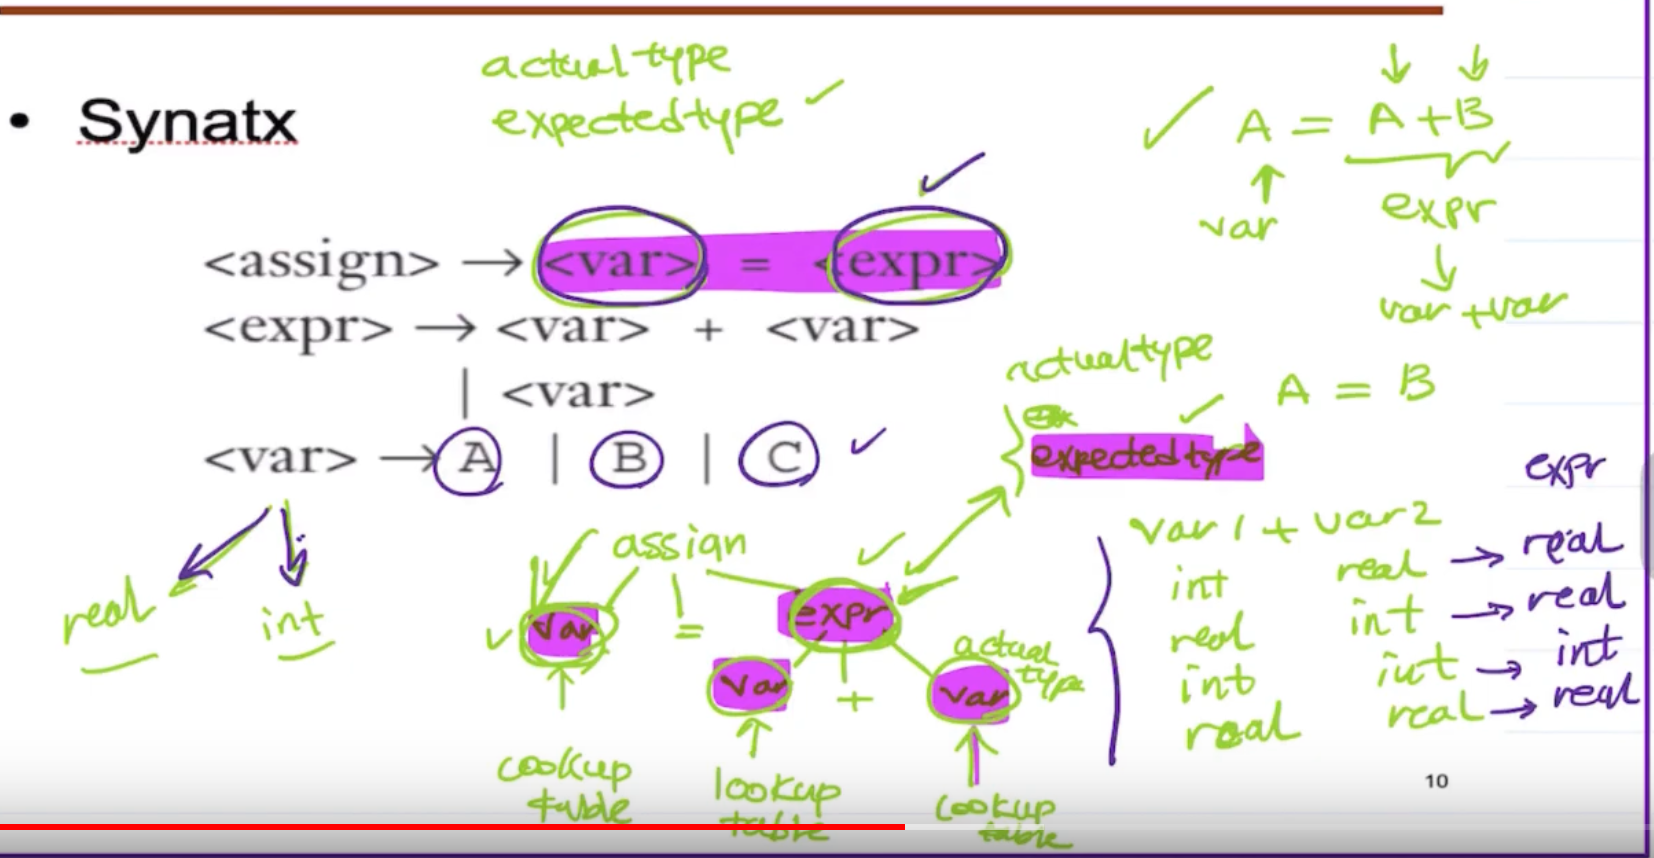 actual type
expected type ✓
• Synatx
✓ A = A + B
var
expr
var + var
<assign> → <var> = <expr>
<expr> → <var> + <var>
| <var>
<var> → A | B | C ✓
actual type
expected type
A = B
real
int
assign
var = expr
var + var
actual type
lookup table
lookup table
lookup table
expr
var 1 + var 2
int real → real
real int → real
int int → int
real real → real
10